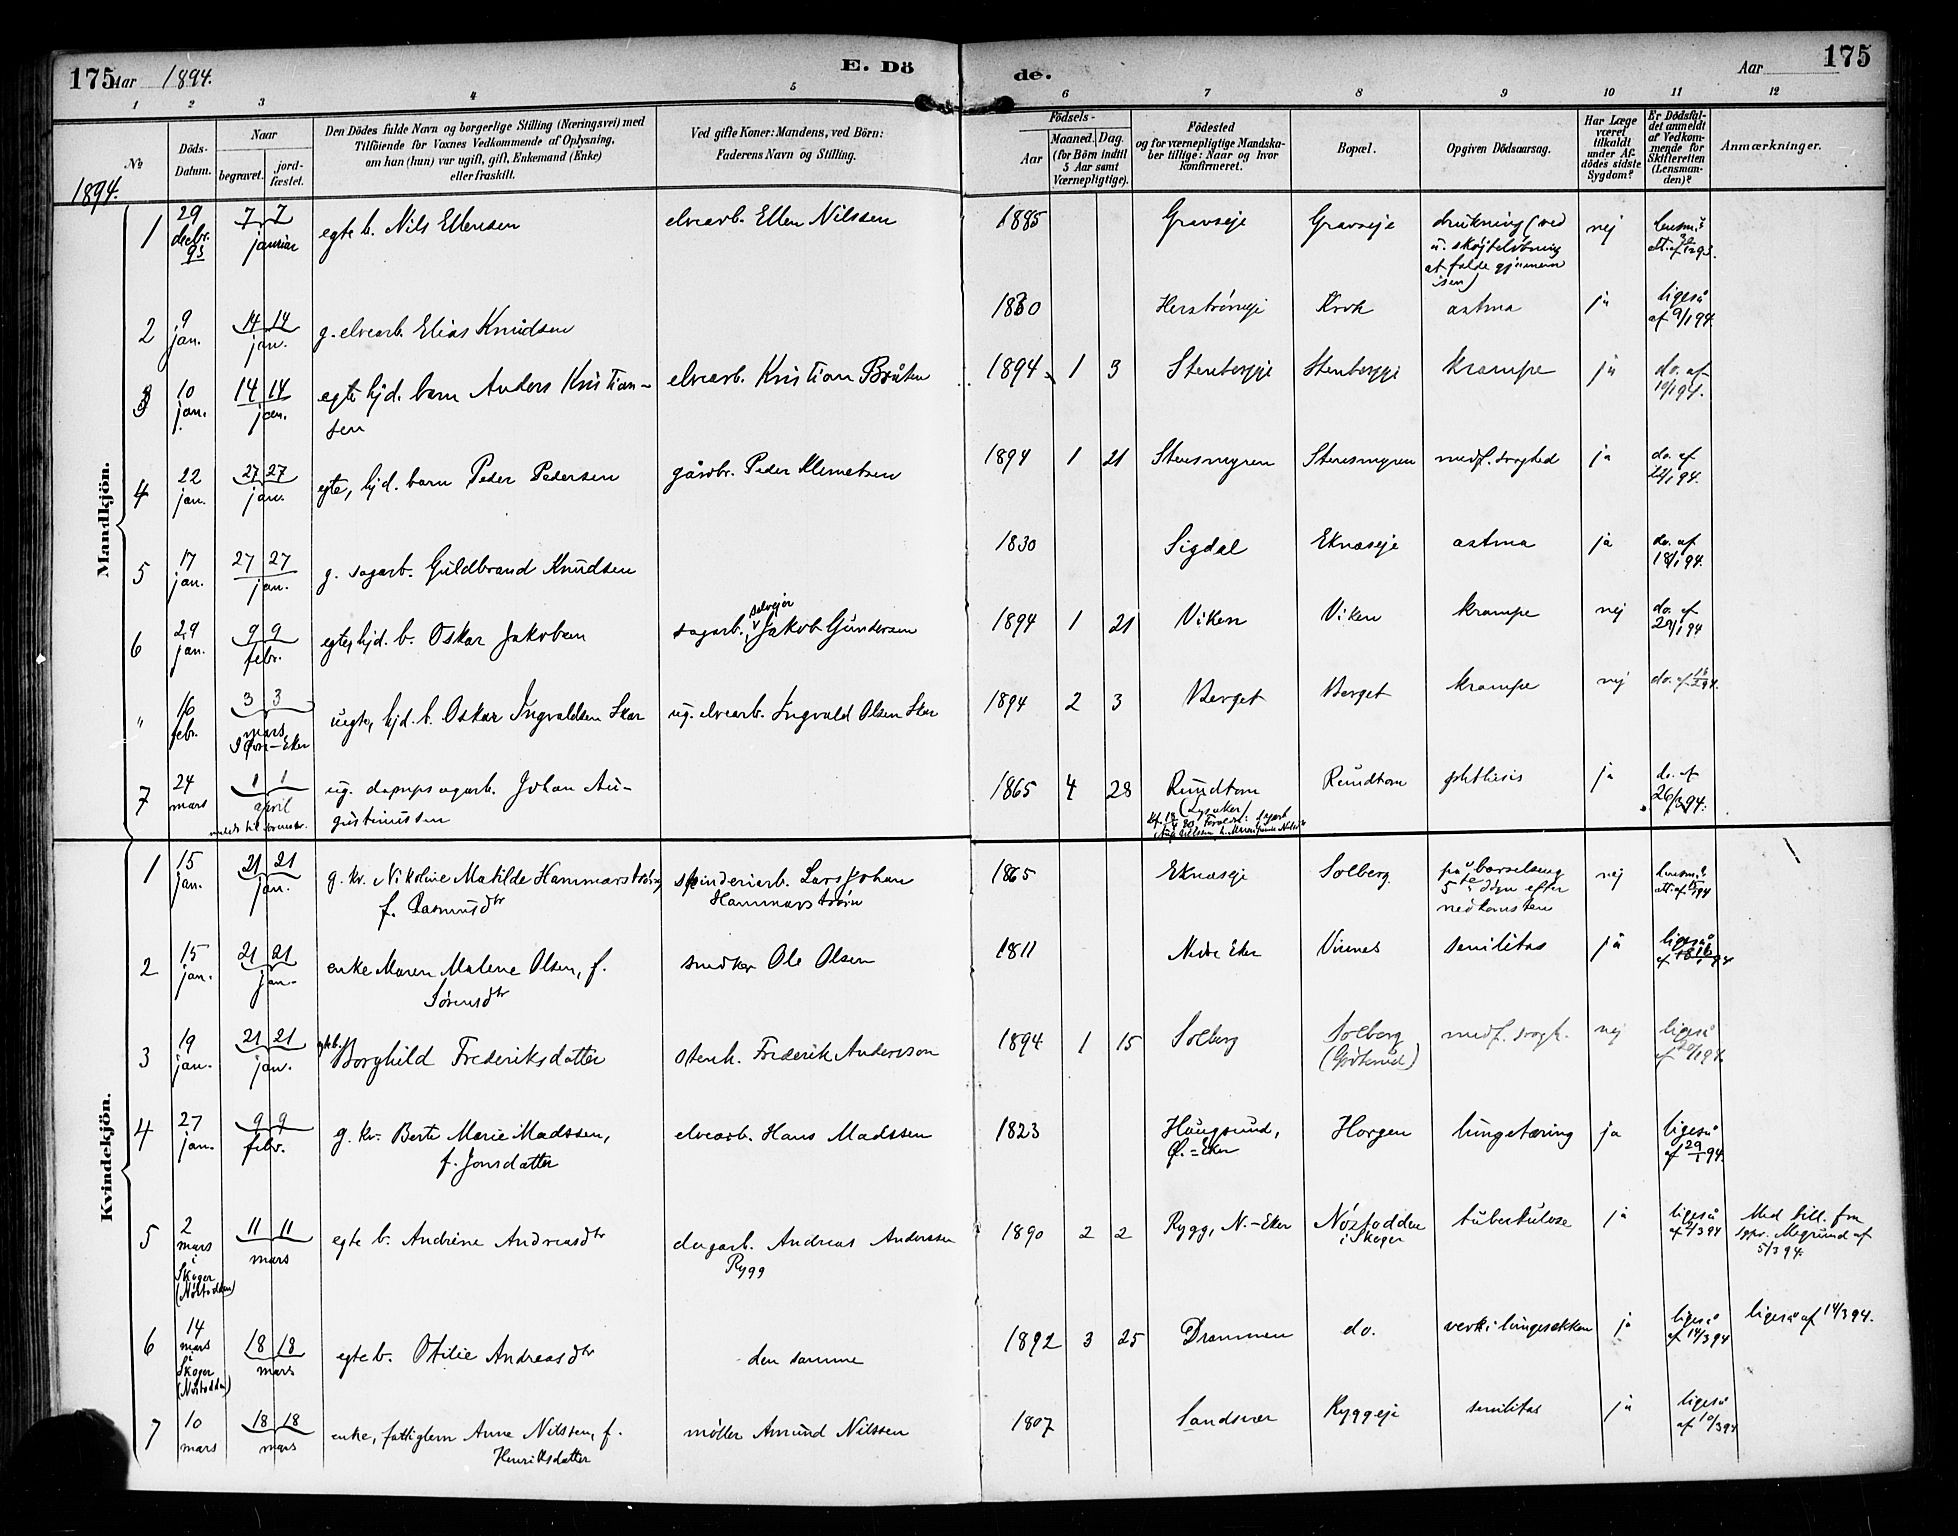 175 Aar 1894. E. Dö de. Aar 175
1 2 3 4 5 6 7 8 9 10 11 12
No
Döds-Datum.
Naar
begravet.
jord-fæstet.
Den Dödes fulde Navn og borgerlige Stilling (Næringsvei) med
Tilföiende for Voxnes Vedkommende af Oplysning,
om han (hun) var ugift, gift, Enkemand (Enke)
eller fraskilt.
Ved gifte Koner: Mandens, ved Börn:
Faderens Navn og Stilling.
Födsels-
Aar
Maaned. Dag.
(for Börn indtil
5 Aar samt
Værnepligtige).
Födested
og for værnepligtige Mandska-
ber tillige: Naar og hvor
konfirmeret.
Bopæl.
Opgiven Dödsaarsag.
Har Læge
været
tilkaldt
under Af-
dödes sidste
Sygdom?
Er Dödsfal-
det anmeldt
af Vedkom-
mende for
Skifteretten
(Lensman-
den)?
Anmærkninger.
1894.
Mandkjön.
1 29 decbr. 93 7 7 januar egte b. Nils Ellensen elvearb. Ellen Nilssen 1885 Gravseje Gravseje drukning (ved
u. skøjteløbning
at falde gjennem
isen) nej
2 9 jan. 14 14 jan. g. elvearb. Elias Knudsen 1830 Krok astma ja ligeså af 9/1 94.
3 10 jan. 14 14 jan. egte hjd. barn Anders Kristian-
sen elvearb. Kristian Bråten 1894 1 3 Stenbergeje Stenbergeje krampe ja do. af 10/1 94.
4 22 jan. 27 27 jan. egte, hjd. barn Peder Pedersen gårdbr. Peder Klemetsen 1894 1 21 Stensmyren Stensmyren medf. svaghed ja do. af 22/1 94.
5 17 jan. 27 27 jan. g. sagarb. Guldbrand Knudsen 1830 Sigdal Eknæseje astma ja do. af 18/1 94.
6 29 jan. 9 9 febr. egte, hjd. b. Oskar Jakobsen sagarb., selvejer Jakob Gundersen 1894 1 21 Viken Viken krampe nej do. af 29/1 94
" 16 febr. 3 3 mars
I Øvre-Eker uegte, hjd. b. Oskar Ingvaldsen Skar ug. elvearb. Ingvald Olsen Skar 1894 2 3 Berget Berget krampe nej do. af
7 24 mars 1 1 april ug. sagarb. Johan Au-
gustinussen 1865 4 28 Rundtom
(Lysaker) Rundtom phthisis ja do. af 26/3 94.
Kvindekjön.
1 15 jan. 21 21 jan. g. kv. Nikoline Matilde Hammarström
f. Rasmusdtr spinderiarb. Lars Johan
Hammarström 1865 Eknæseje Solberg på barselseng
5te dagen efter
nedkomsten nej
2 15 jan. 21 21 jan. enke Maren Malene Olsen, f.
Sørensdtr snedker Ole Olsen 1811 Nedre Eker Vinnes senilitas ja ligeså
3 19 jan. 21 21 jan. egte b. Borghild Frederiksdatter stenh. Frederik Andersson 1894 1 15 Solberg Solberg medf. svagh. nej ligeså af 20/1 94.
4 27 jan. 9 9 febr. g. kv. Berte Marie Madssen,
f. Jonsdatter elvearb. Hans Madssen 1823 Haugsund,
Ø.-Eker Horgen lungetæring ja ligeså af 29/1 94.
5 2 mars i Skoger 11 11 mars egte b. Andrine Andreasdtr dagarb. Andreas Anderssen
Rygg 1890 2 2 Rygg, N.-Eker Nøstodden
i Skoger tuberkulose ja ligeså af 2/3 94 Med till. fra
sgpr. Megrund af
5/3 94.
6 14 mars i Skoger (Nøstodden) 18 18 mars egte b. Otilie Andreasdtr den samme 1892 3 25 Drammen do. verk i lungesækken ja ligeså af 14/3 94 ligeså af 14/3 94.
7 10 mars 18 18 mars enke, fattiglem Anne Nilssen, f.
Henriksdatter møller Amund Nilssen 1807 Sandsvær Ryggeje senilitas ja ligeså af 10/3 94